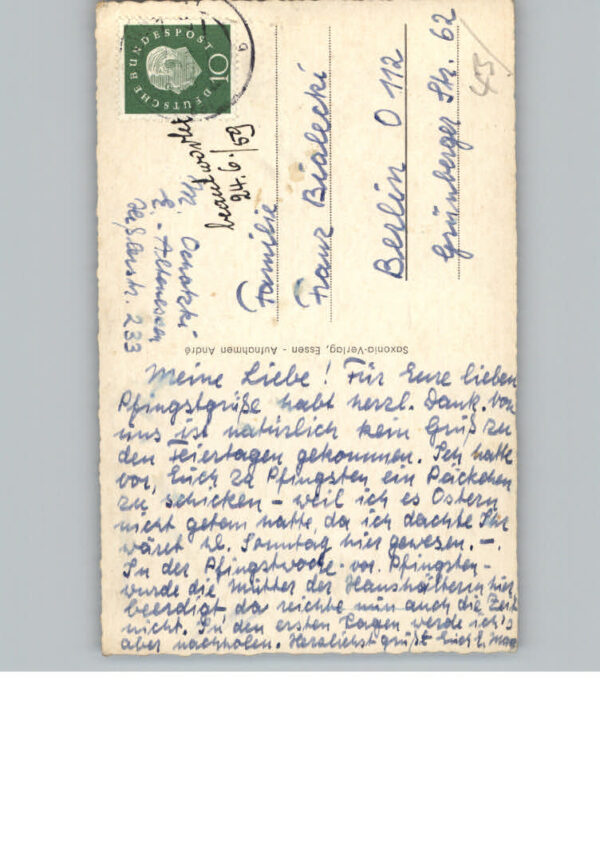 DEUTSCHE BUNDESPOST
10
beantwortet
24.6./59
E.-Altenessen
Heßlerstr. 233
Familie
Franz Bialecki
Berlin O 112
Grünberger Str. 62
45
Saxonia-Verlag, Essen - Aufnahmen André
Meine Liebe! Für Eure lieben
Pfingstgrüße habt herzl. Dank. Von
uns ist natürlich kein Gruß zu
den Feiertagen gekommen. Ich hatte
vor, Euch zu Pfingsten ein Päckchen
zu schicken – weil ich es Ostern
nicht getan hatte, da ich dachte Ihr
wäret Sonntag hier gewesen. –.
In der Pfingstwoche - vor Pfingsten -
wurde die Mutter der Haushälterin hier
beerdigt da reichte nun auch die Zeit
nicht. In den ersten Tagen werde ich's
aber nachholen. Herzlichst grüßt Euch